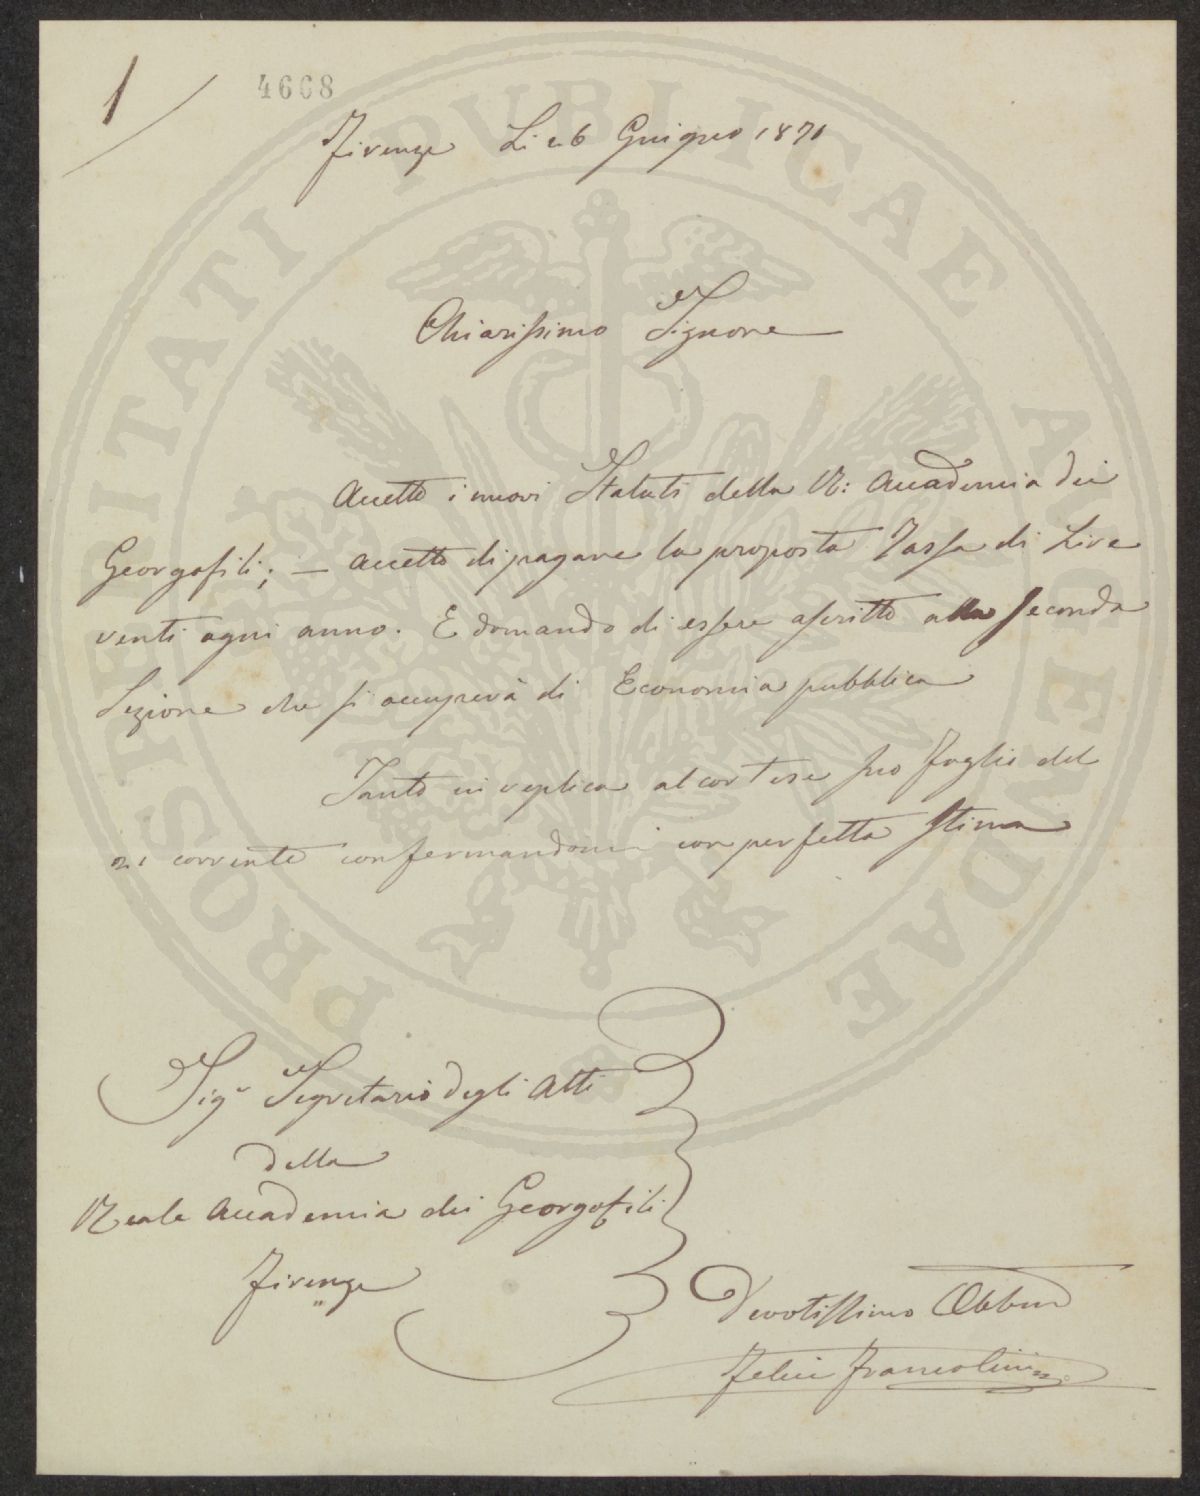 1
4668
Firenze Li 26 Giugno 1871
Chiarissimo Signore
Accetto i nuovi Statuti della R: Accademia dei
Georgofili; — accetto di pagare la proposta Tassa di Lire
venti ogni anno. E domando di essere ascritto alla Seconda
Sezione che si occuperà di Economia pubblica
Tanto in replica al cortese suo foglio del
21 corrente confermandomi con perfetta stima
Sigr Segretario degli Atti
della
Reale Accademia dei Georgofili
Firenze
Devotissimo Obbmo
Felice Francolini
PROSPERITATI PUBLICAE AUGENDAE